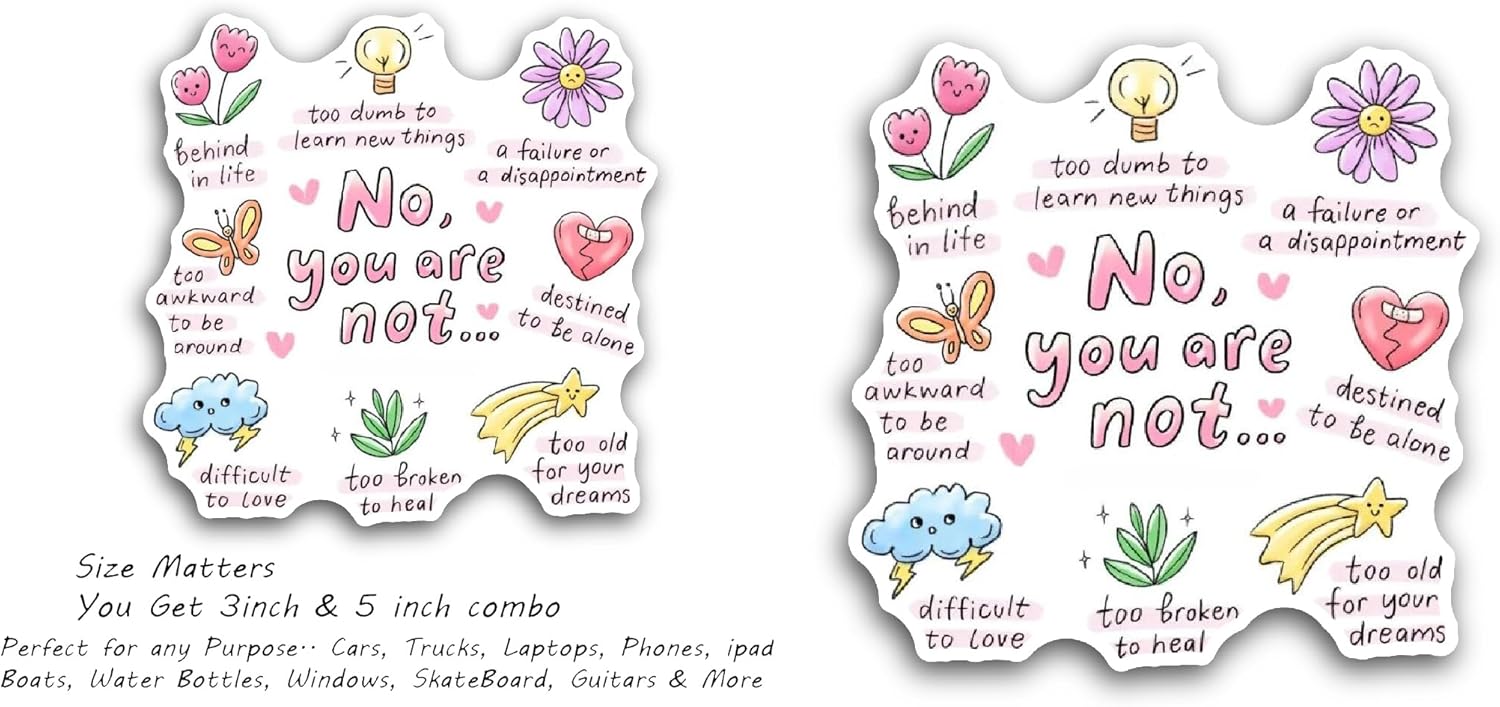 too dumb to
learn new things
behind
in life
a failure or
a disappointment
No,
you are
not...
too
awkward
to be
around
destined
to be alone
difficult
to love
too broken
to heal
too old
for your
dreams
Size Matters
You Get 3inch & 5 inch combo
Perfect for any Purpose·· Cars, Trucks, Laptops, Phones, ipad
Boats, Water Bottles, Windows, SkateBoard, Guitars & More
too dumb to
learn new things
behind
in life
a failure or
a disappointment
No,
you are
not...
too
awkward
to be
around
destined
to be alone
difficult
to love
too broken
to heal
too old
for your
dreams